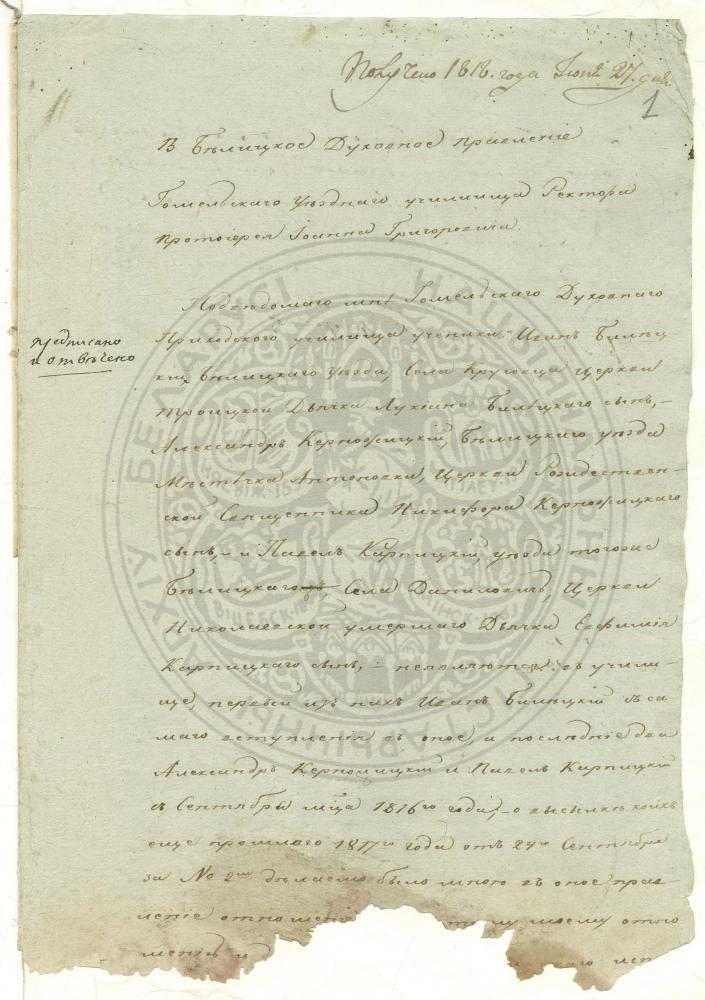 Получено 1818. года Іюня 27. дня.
1
В Бѣлицкое Духовное правленіе
Гомельскаго уѣзднаго училища Ректора
протоіерея Іоанна Григоровича.
Подвѣдомаго мнѣ Гомельскаго Духовнаго
Приходского училища ученики: Иванъ Билец-
кій Бѣлицкаго уѣзда, Села Круговца Церкви
троицкой Дьячка Лукіана Билецкаго сынъ,-
Александръ Керножицкій, Бѣлицкаго уѣзда
Мѣстечка Антоновки, Церкви Рождествен-
ской Священника Никифора Керножицкаго
сынъ,- и Павелъ Карпицкій, уѣзда тогоже
Бѣлицкаго, Села Даниловичъ, Церкви
Николаевской умершаго Дьячка Евфимія
Карпицкаго сынъ,- неявляются въ учили-
ще, первый изъ нихъ Иванъ Билецкій съ са-
маго вступленія въ оное, а послѣдніе два
Александръ Керножицкій и Павелъ Карпицкій
съ Сентября мца 1816го года,- о высылкѣ коихъ
еще прошлаго 1817го года отъ 24го Сентября
за № 2мъ дѣлаемо было мною въ оное прав-
леніе отношеніе тому моему отно
шенію и
предписано
и отвѣчено